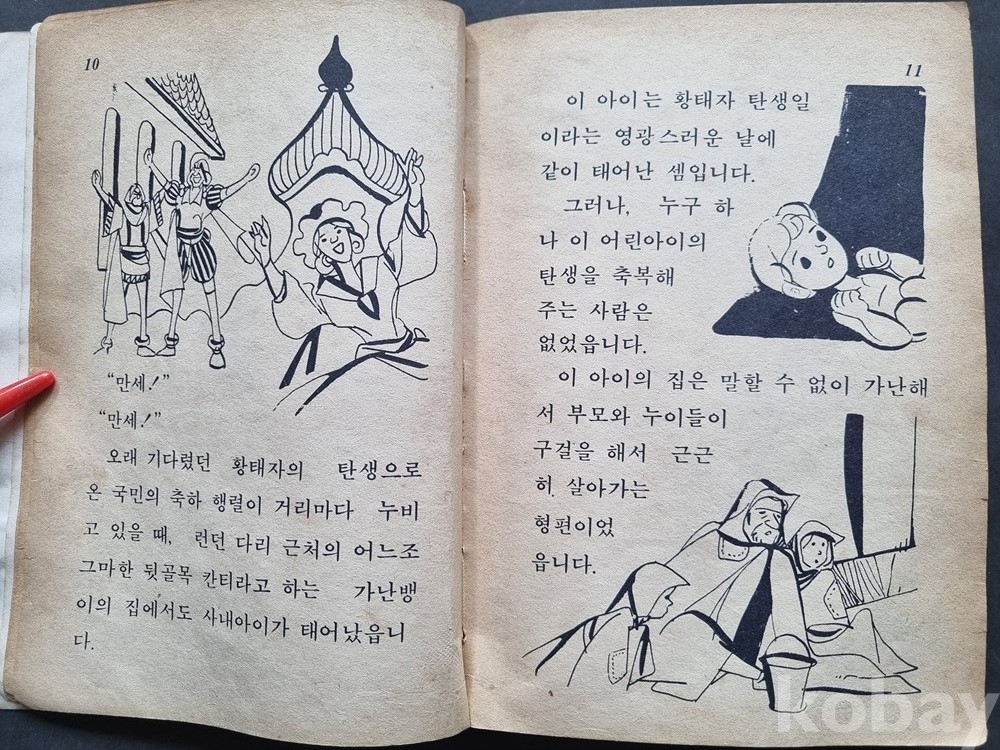 10
“만세!”
“만세!”
오래 기다렸던 황태자의 탄생으로
온 국민의 축하 행렬이 거리마다 누비
고 있을 때, 런던 다리 근처의 어느조
그마한 뒷골목 칸티라고 하는 가난뱅
이의 집에서도 사내아이가 태어났읍니
다.
11
이 아이는 황태자 탄생일
이라는 영광스러운 날에
같이 태어난 셈입니다.
그러나, 누구 하
나 이 어린아이의
탄생을 축복해
주는 사람은
없었읍니다.
이 아이의 집은 말할 수 없이 가난해
서 부모와 누이들이
구걸을 해서 근근
히 살아가는
형편이었
읍니다.
kobay